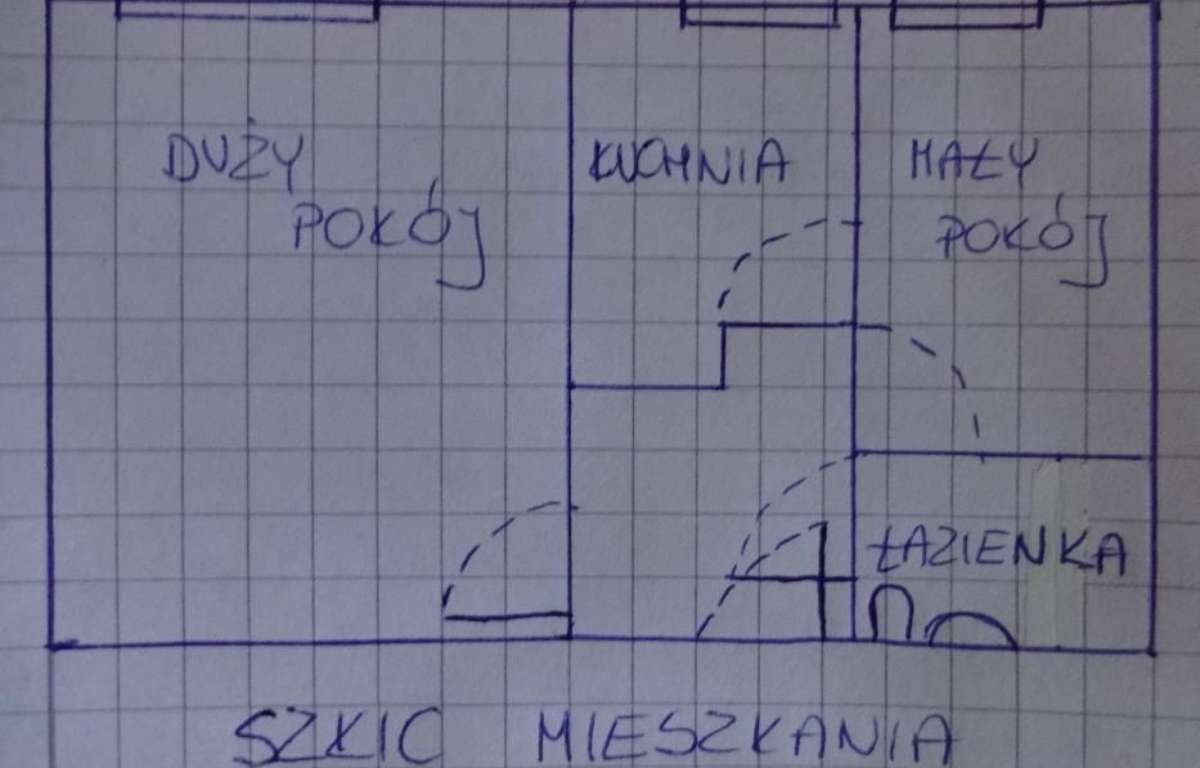 DUŻY
POKÓJ
KUCHNIA
MAŁY
POKÓJ
ŁAZIENKA
SZKIC MIESZKANIA